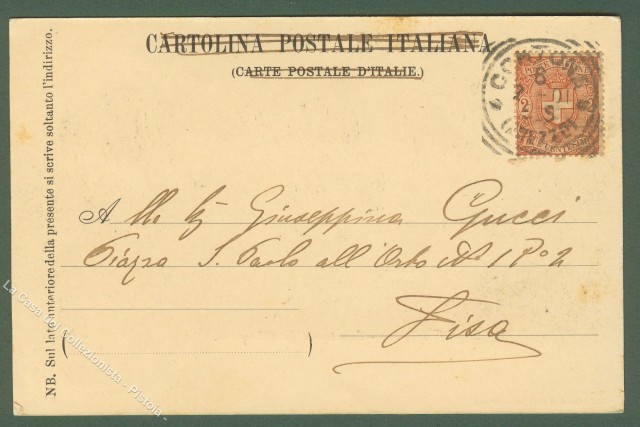 CARTOLINA POSTALE ITALIANA
(CARTE POSTALE D'ITALIE.)
CORTONA
(AREZZO)
2 2
NB. Sul lato anteriore della presente si scrive soltanto l'indirizzo.
A Giuseppina Gucci
Piazza S. Paolo all'Orto Nº 1 Pº 2
Pisa
La Casa del Collezionista - Pistoia -